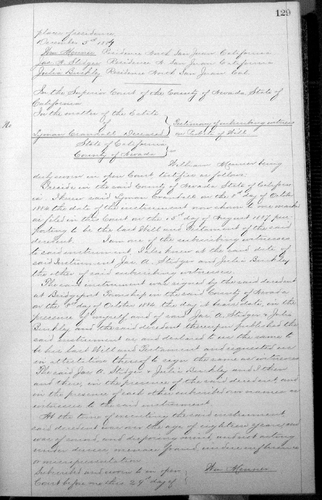 129
place of residence
December 5th 1887
Wm Mooner Residence North San Juan California
Jas A. Stidger Residence N. San Juan California
Julia Buckley Residence North San Juan Cal
In the Superior Court of the County of Nevada State of
California
In the matter of the Estate
of
Lyman Crandall Deceased
Testimony of subscribing witness
on Probate of Will
State of California
County of Nevada
William being
duly sworn in open Court testifies as follows:
I reside in the said County of Nevada State of Califor
nia I knew said Lyman Crandall on the day of October
1886 the date of the instrument now shown to me marked
as filed in this Court on the day of August 1887 pur
porting to be the last Will and Testament of the said
decedent. I am one of the subscribing witnesses
to said instrument I also knew at the said date of
said instrument Jas A. Stidger and Julia Buckley
the other of said subscribing witnesses.
The said instrument was signed by the said decedent
at Bridgeport Township in the said County of Nevada
on the day of October 1886 the day it bears date, in the
presence of myself and of said Jas A. Stidger & Julia
Buckley and the said decedent thereupon published the
said instrument as and declared to us the same to
be his last Will and Testament and requested us
in attestation thereof to sign the same as witnesses
The said Jas A. Stidger & Julia Buckley and I then
and there, in the presence of the said decedent and
in the presence of each other subscribed our names as
witnesses to the said instrument.
At the time of executing the said instrument
said decedent was over the age of eighteen years, and
was of sound and disposing mind, and not acting
under duress, menace, fraud, undue influence
or misrepresentation
Subscribed and sworn to in open
Court before me this 24th day of
Wm